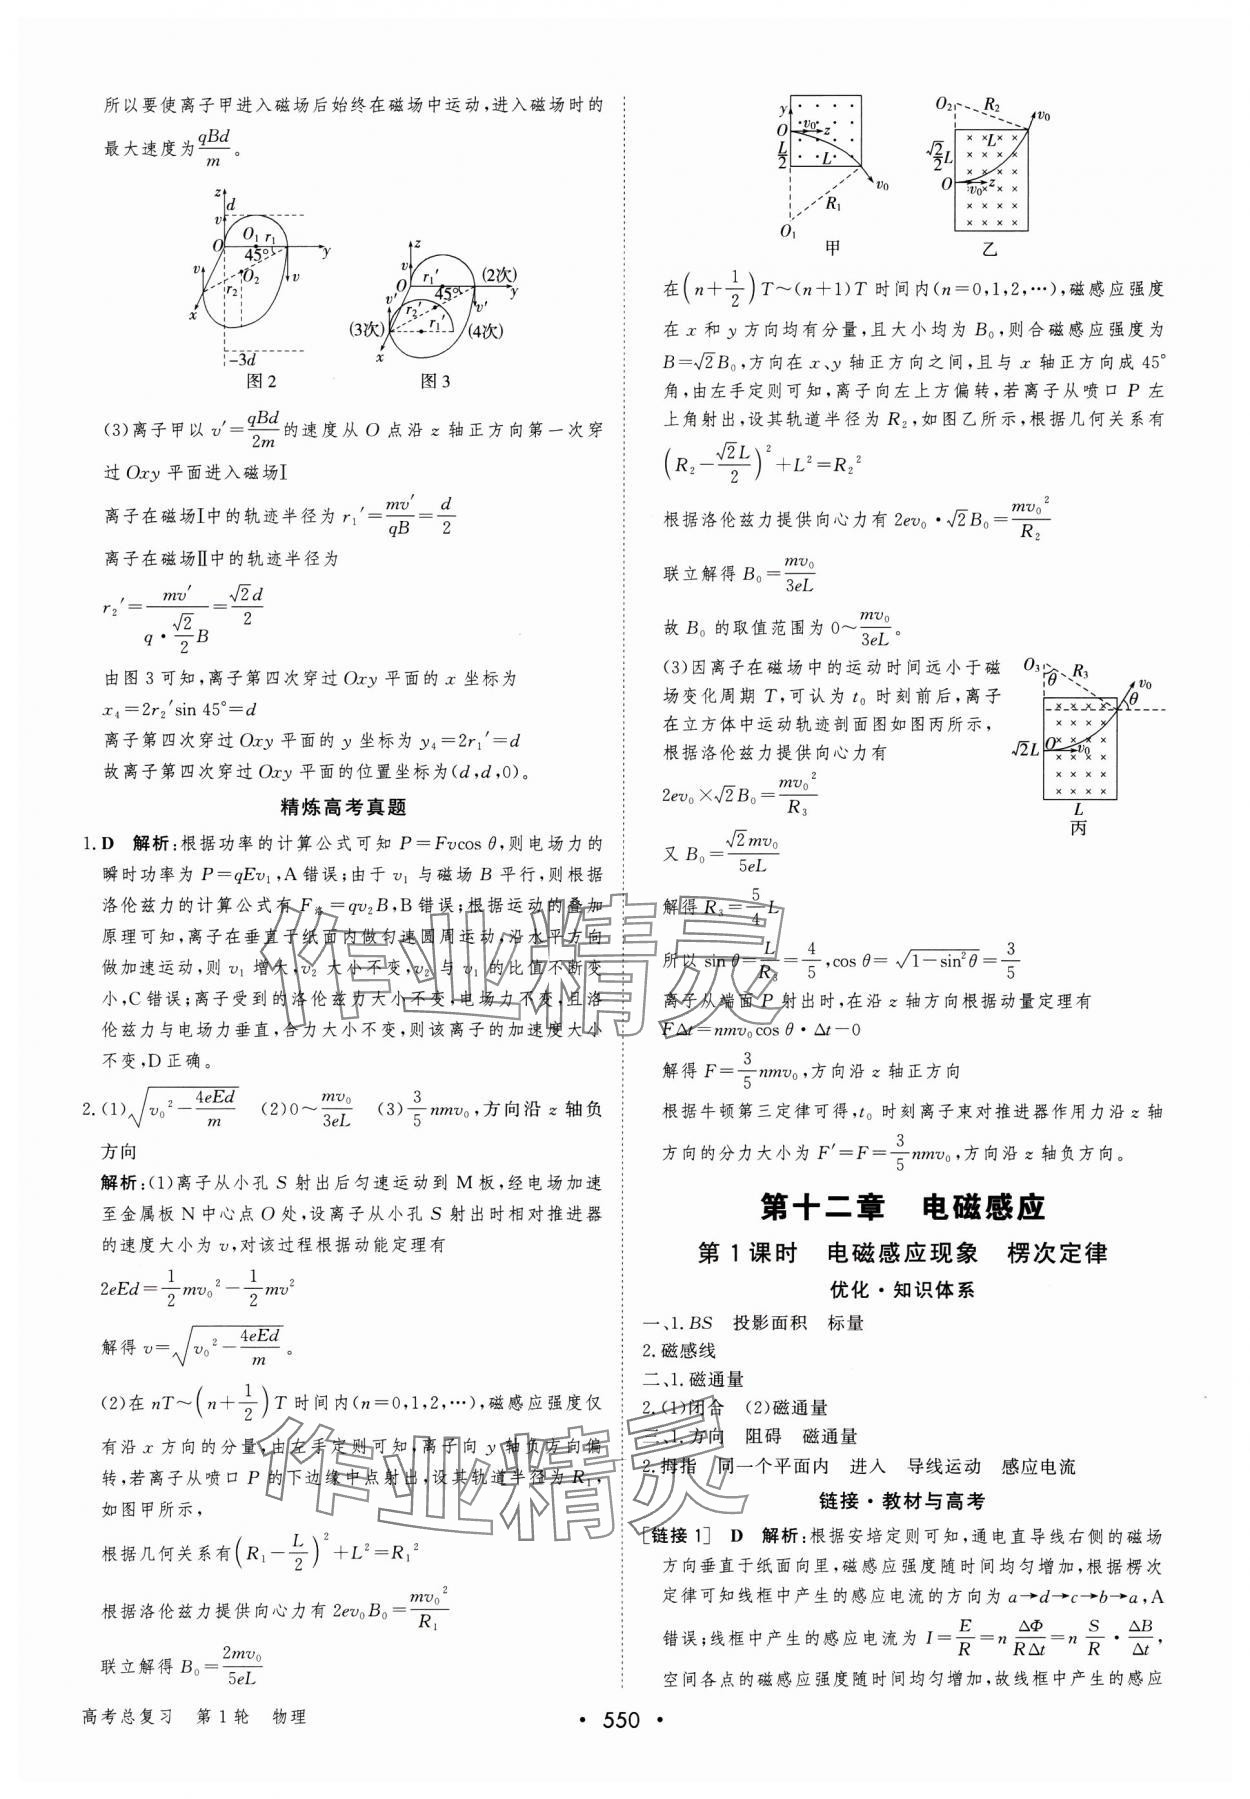 所以要使离子甲进入磁场后始终在磁场中运动,进入磁场时的
最大速度为qBd/m。
z d v O O₁ r₁ 45° y v r₂ O₂ v x −3d
图2
z v O r₁′ (2次) y v′ 45° r₂′ v′ (3次) r₁′ (4次) x
图3
(3)离子甲以 v′=qBd/2m的速度从O点沿z轴正方向第一次穿
过Oxy平面进入磁场Ⅰ
离子在磁场Ⅰ中的轨迹半径为 r₁′=mv′/qB=d/2
离子在磁场Ⅱ中的轨迹半径为
r₂′=mv′/(q·(√2/2)B)=√2d/2
由图3可知,离子第四次穿过Oxy平面的x坐标为
x₄=2r₂′sin 45°=d
离子第四次穿过Oxy平面的y坐标为 y₄=2r₁′=d
故离子第四次穿过Oxy平面的位置坐标为(d,d,0)。
精炼高考真题
1.D 解析:根据功率的计算公式可知 P=Fvcos θ,则电场力的
瞬时功率为 P=qEv₁,A错误;由于 v₁ 与磁场B平行,则根据
洛伦兹力的计算公式有 F洛=qv₂B,B错误;根据运动的叠加
原理可知,离子在垂直于纸面内做匀速圆周运动,沿水平方向
做加速运动,则 v₁ 增大,v₂ 大小不变,v₂ 与 v₁ 的比值不断变
小,C错误;离子受到的洛伦兹力大小不变,电场力不变,且洛
伦兹力与电场力垂直,合力大小不变,则该离子的加速度大小
不变,D正确。
2.(1)√(v₀²−4eEd/m) (2)0~mv₀/3eL (3)3/5nmv₀,方向沿z轴负
方向
解析:(1)离子从小孔S射出后匀速运动到M板,经电场加速
至金属板N中心点O处,设离子从小孔S射出时相对推进器
的速度大小为v,对该过程根据动能定理有
2eEd=1/2mv₀²−1/2mv²
解得 v=√(v₀²−4eEd/m)。
(2)在 nT~(n+1/2)T时间内(n=0,1,2,⋯),磁感应强度仅
有沿x方向的分量,由左手定则可知,离子向y轴负方向偏
转,若离子从喷口P的下边缘中点射出,设其轨道半径为R₁,
如图甲所示,
根据几何关系有(R₁−L/2)²+L²=R₁²
根据洛伦兹力提供向心力有 2ev₀B₀=mv₀²/R₁
联立解得 B₀=2mv₀/5eL
高考总复习 第1轮 物理
y O v₀ z L/2 L v₀ R₁ O₁
甲
O₂ R₂ v₀ L √2/2L O v₀ z
乙
在(n+1/2)T~(n+1)T时间内(n=0,1,2,⋯),磁感应强度
在x和y方向均有分量,且大小均为B₀,则合磁感应强度为
B=√2B₀,方向在x、y轴正方向之间,且与x轴正方向成45°
角,由左手定则可知,离子向左上方偏转,若离子从喷口P左
上角射出,设其轨道半径为R₂,如图乙所示,根据几何关系有
(R₂−√2L/2)²+L²=R₂²
根据洛伦兹力提供向心力有 2ev₀·√2B₀=mv₀²/R₂
联立解得 B₀=mv₀/3eL
故B₀的取值范围为0~mv₀/3eL。
(3)因离子在磁场中的运动时间远小于磁
场变化周期T,可认为t₀时刻前后,离子
在立方体中运动轨迹剖面图如图丙所示,
根据洛伦兹力提供向心力有
O₃ θ R₃ v₀ θ √2L O v₀ L
丙
2ev₀×√2B₀=mv₀²/R₃
又 B₀=√2mv₀/5eL
解得 R₃=5/4L
所以 sin θ=L/R₃=4/5,cos θ=√(1−sin²θ)=3/5
离子从端面P射出时,在沿z轴方向根据动量定理有
FΔt=nmv₀cos θ·Δt−0
解得 F=3/5nmv₀,方向沿z轴正方向
根据牛顿第三定律可得,t₀时刻离子束对推进器作用力沿z轴
方向的分力大小为 F′=F=3/5nmv₀,方向沿z轴负方向。
第十二章 电磁感应
第1课时 电磁感应现象 楞次定律
优化·知识体系
一、1.BS 投影面积 标量
2.磁感线
二、1.磁通量
2.(1)闭合 (2)磁通量
三、1.方向 阻碍 磁通量
2.拇指 同一个平面内 进入 导线运动 感应电流
链接·教材与高考
[链接1] D 解析:根据安培定则可知,通电直导线右侧的磁场
方向垂直于纸面向里,磁感应强度随时间均匀增加,根据楞次
定律可知线框中产生的感应电流的方向为a→d→c→b→a,A
错误;线框中产生的感应电流为 I=E/R=nΔΦ/RΔt=nS/R·ΔB/Δt,
空间各点的磁感应强度随时间均匀增加,故线框中产生的感应
· 550 ·
作业精灵
作业精灵